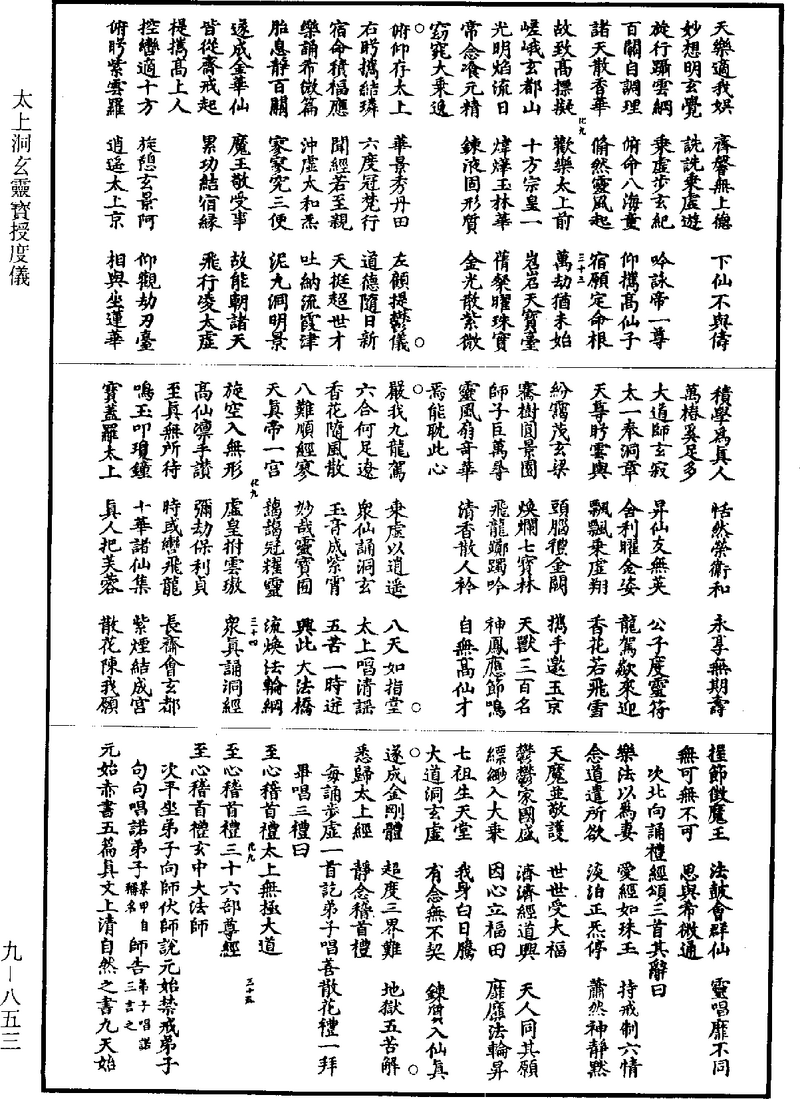 太上洞玄靈寶授度儀
天樂適我娛　齊馨無上德　下仙不與儔
妙想明玄覺　詵詵乘虛遊
旋行躡雲綱　乘虛步玄紀　吟詠帝一尊
百關自調理　俯命八海童　仰攜高仙子
諸天散香華　翛然靈風起　宿願定命根
故致高標擬　歡樂太上前　萬劫猶未始
嵯峨玄都山　十方宗皇一　岧岧天寶臺
光明焰流日　煒燁玉林華　蒨璨曜珠實
常念飡元精　鍊液固形質　金光散紫微
窈窕大乘逸
俯仰存太上　華景秀丹田　左顧提鬱儀
右眄攜結璘　六度冠梵行　道德隨日新
宿命積福應　聞經若至親　天挺超世才
樂誦希微篇　沖虛太和炁　吐納流霞津
胎息靜百關　寥寥究三便　泥丸洞明景
遂成金華仙　魔王敬受事　故能朝諸天
皆從齋戒起　累功結宿緣　飛行凌太虛
提攜高上人
控轡適十方　旋憩玄景阿　仰觀劫刃臺
俯眄紫雲羅　逍遥太上京　相與坐蓮華
積學爲真人　恬然榮衛和　永享無期壽
萬椿奚足多
大道師玄寂　昇仙友無英　公子度靈符
太一奉洞章　金利曜金姿　龍駕欻來迎
天尊眄雲輿　飄飄乘虛翔　香花若飛雪
紛靄茂玄梁　頭腦禮金闕　攜手邀玉京
騫樹圓景園　煥爛七寶林　天獸三百名
師子巨萬尋　飛龍躑躅吟　神鳳應節鳴
靈風扇奇華　清香散人衿　自無高仙才
焉能耽此心
嚴我九龍駕　乘虛以逍遥　八天如指掌
六合何足遼　衆仙誦洞玄　太上唱清謡
香花隨風散　玉音成紫霄　五苦一時迸
八難順經寥　妙哉靈寶囿　興此大法橋
天真帝一宫　靄靄冠耀靈　流煥法輪綱
旋空入無形　虛皇拊雲璈　衆真誦洞經
高仙凛手讚　彌劫保利貞
至真無所待　時或轡飛龍　長齋會玄都
鳴玉叩瓊鐘　十華諸仙集　紫煙結成宫
寶蓋羅太上　真人把芙蓉　散花陳我願
握節徵魔王　法鼓會群仙　靈唱靡不同
無可無不可　思與希微通
次北向誦禮經頌三首其辭曰
樂法以爲妻　愛經如珠玉　持戒制六情
念道遣所欲　淡泊正炁停　蕭然神靜默
天魔並敬護　世世受大福
鬱鬱家國盛　濟濟經道興　天人同其願
縹緲入大乘　因心立福田　靡靡法輪昇
七祖生天堂　我身白日騰
大道洞玄虛　有念無不契　鍊質入仙真
遂成金剛體　超度三界難　地獄五苦解
悉歸太上經　靜念稽首禮
每誦步虛一首訖弟子唱善散花禮一拜
畢唱三禮曰
至心稽首禮太上無極大道
至心稽首禮三十六部尊經
至心稽首禮玄中大法師
次平坐弟子向師伏師說元始禁戒弟子
句句唱諾弟子某甲自稱名師告弟子唱諾三言之
元始赤書五篇真文上清自然之書九天始
化九
三十三
化九
三十四
化九
三十五
九—八五三